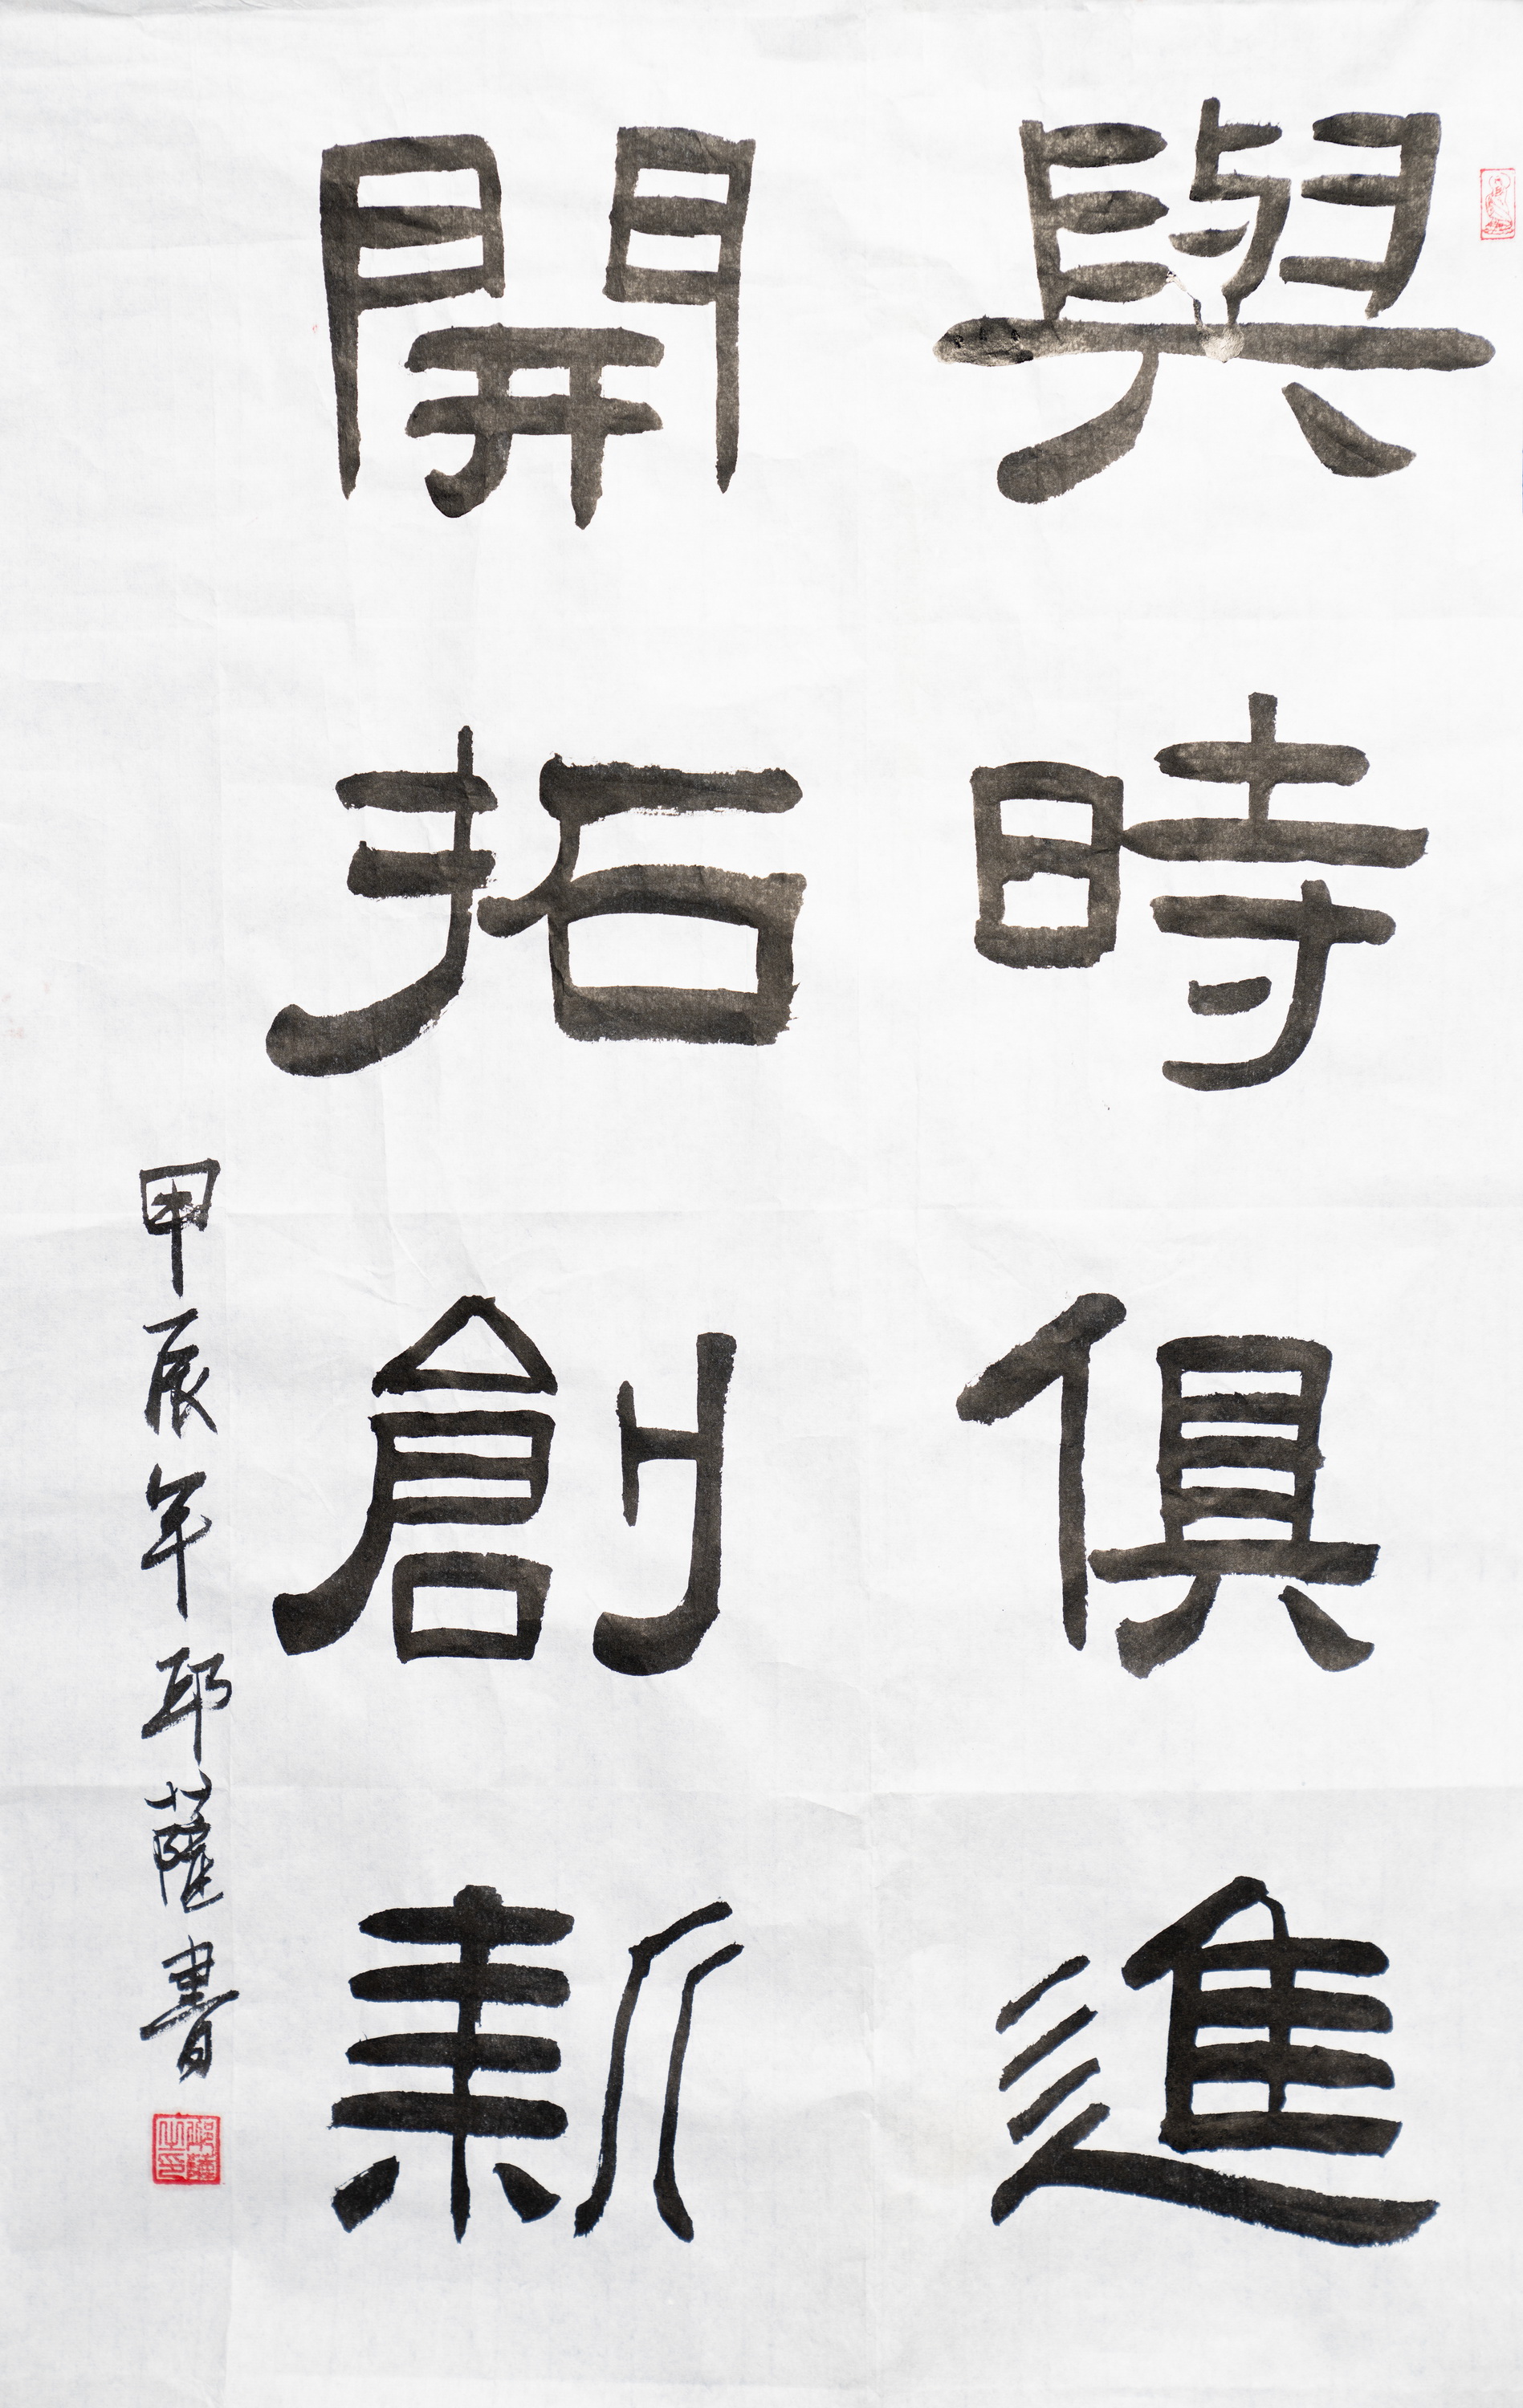 與時俱進
開拓創新
甲辰年邱薩書